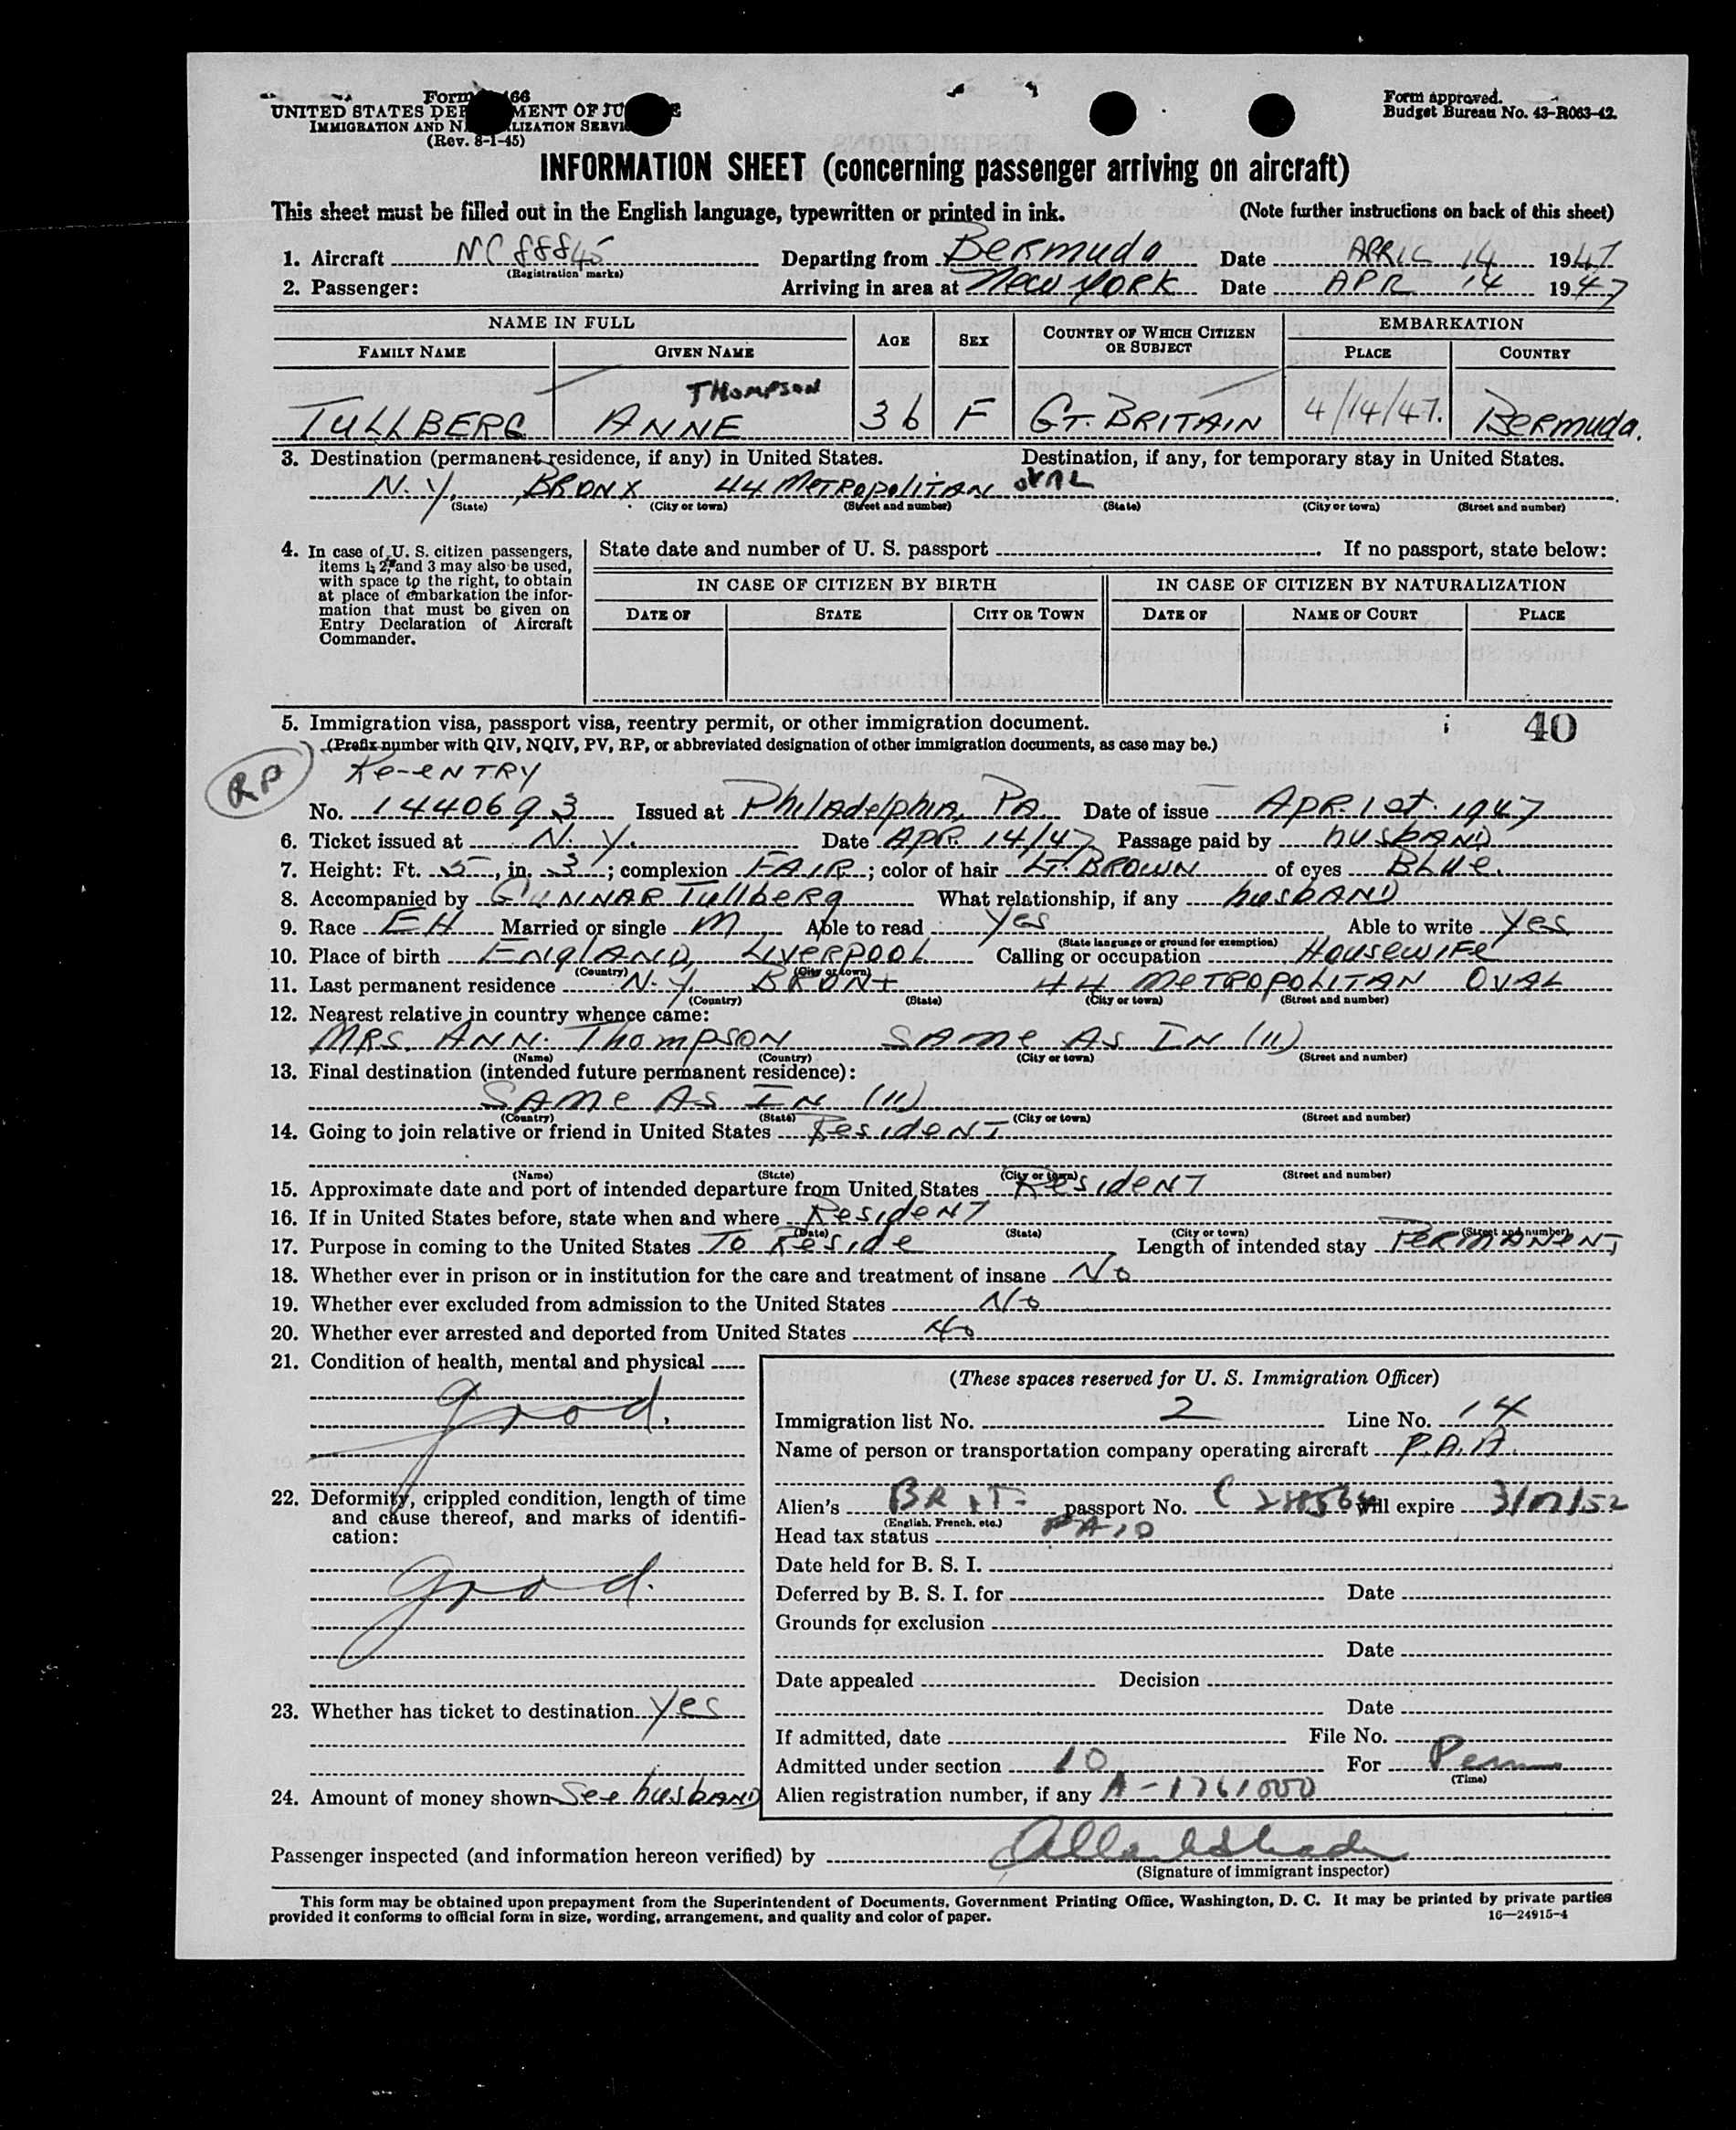 Form 466
UNITED STATES DEPARTMENT OF JUSTICE
IMMIGRATION AND NATURALIZATION SERVICE
(Rev. 8-1-45)
Form approved.
Budget Bureau No. 43-R063-42.
INFORMATION SHEET (concerning passenger arriving on aircraft)
This sheet must be filled out in the English language, typewritten or printed in ink. (Note further instructions on back of this sheet)
1. Aircraft NC 88845 Departing from Bermuda Date APRIL 14 1947
(Registration marks)
2. Passenger: Arriving in area at New York Date APR 14 1947
NAME IN FULL AGE SEX COUNTRY OF WHICH CITIZEN OR SUBJECT EMBARKATION
FAMILY NAME GIVEN NAME PLACE COUNTRY
THOMPSON
TULLBERG ANNE 36 F GT. BRITAIN 4/14/47. Bermuda.
3. Destination (permanent residence, if any) in United States. Destination, if any, for temporary stay in United States.
N. Y. BRONX 44 METROPOLITAN OVAL
(State) (City or town) (Street and number) (State) (City or town) (Street and number)
4. In case of U. S. citizen passengers, items 1, 2, and 3 may also be used, with space to the right, to obtain at place of embarkation the information that must be given on Entry Declaration of Aircraft Commander.
State date and number of U. S. passport If no passport, state below:
IN CASE OF CITIZEN BY BIRTH IN CASE OF CITIZEN BY NATURALIZATION
DATE OF STATE CITY OR TOWN DATE OF NAME OF COURT PLACE
5. Immigration visa, passport visa, reentry permit, or other immigration document. 40
(Prefix number with QIV, NQIV, PV, RP, or abbreviated designation of other immigration documents, as case may be.)
RP Re-eNTRY
No. 1440693 Issued at Philadelphia, PA. Date of issue APR. 1st. 1947
6. Ticket issued at N. Y. Date APR. 14/47 Passage paid by husband
7. Height: Ft. 5, in. 3; complexion FAIR; color of hair LT. BROWN of eyes Blue.
8. Accompanied by GUNNAR Tullberg What relationship, if any husband
9. Race EH Married or single M Able to read Yes Able to write Yes
(State language or ground for exemption)
10. Place of birth ENglAND, LIVERPOOL Calling or occupation HOUSEWIFE
(Country) (City or town)
11. Last permanent residence N. Y. BRONX 44 METROPOLITAN OVAL
(Country) (State) (City or town) (Street and number)
12. Nearest relative in country whence came:
MRS. ANN. Thompson SAMe As IN (11)
(Name) (Country) (City or town) (Street and number)
13. Final destination (intended future permanent residence):
SAMe As IN (11)
(Country) (State) (City or town) (Street and number)
14. Going to join relative or friend in United States ResideNT
(Name) (State) (City or town) (Street and number)
15. Approximate date and port of intended departure from United States ResideNT
16. If in United States before, state when and where ResideNT
(Date) (State) (City or town) (Street and number)
17. Purpose in coming to the United States To Reside Length of intended stay PERMANENT
18. Whether ever in prison or in institution for the care and treatment of insane No
19. Whether ever excluded from admission to the United States No
20. Whether ever arrested and deported from United States No
21. Condition of health, mental and physical
good.
22. Deformity, crippled condition, length of time and cause thereof, and marks of identification:
good.
23. Whether has ticket to destination Yes
24. Amount of money shown See husbAND
(These spaces reserved for U. S. Immigration Officer)
Immigration list No. 2 Line No. 14
Name of person or transportation company operating aircraft P.A.A.
Alien's BRIT. passport No. C will expire 3/ /52
(English, French, etc.)
Head tax status PAID
Date held for B. S. I.
Deferred by B. S. I. for Date
Grounds for exclusion
Date
Date appealed Decision
Date
If admitted, date File No.
Admitted under section 10 For Perm
(Time)
Alien registration number, if any A-1761000
Passenger inspected (and information hereon verified) by
(Signature of immigrant inspector)
This form may be obtained upon prepayment from the Superintendent of Documents, Government Printing Office, Washington, D. C. It may be printed by private parties
provided it conforms to official form in size, wording, arrangement, and quality and color of paper. 16—24915-4